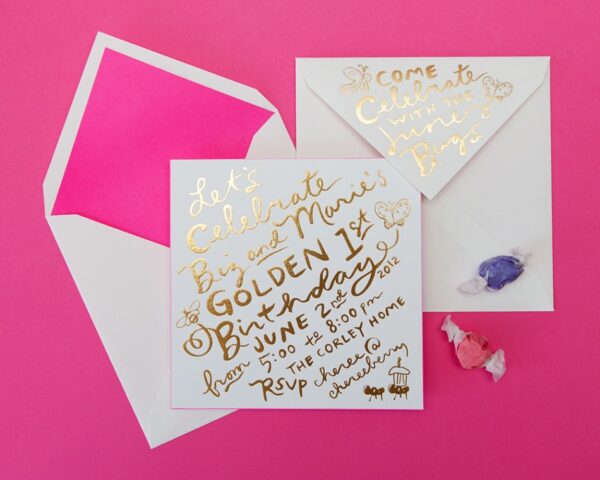 COME
Celebrate
WITH THE
June
Bugs
Let's
Celebrate
Biz and Marie's
GOLDEN 1st
Birthday
JUNE 2nd 2012
from 5:00 to 8:00 pm
THE CORLEY HOME
RSVP cheree@
chereeberry